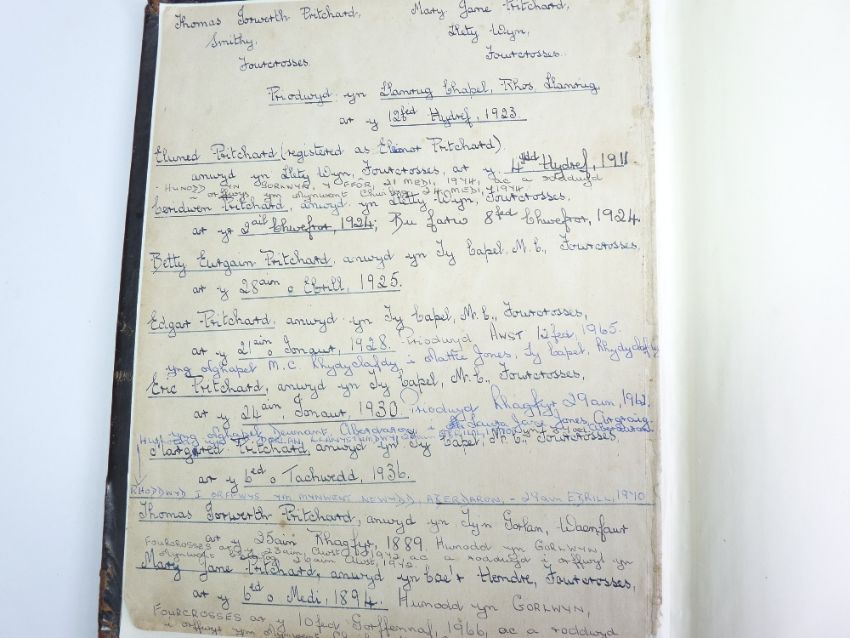 Thomas Iorwerth Pritchard, Mary Jane Pritchard,
Smithy, Llety Wyn,
Fourcrosses Fourcrosses
Priodwyd yn Llanrug Chapel, Rhos Llanrug
ar y 12fed Hydref, 1923.
Eluned Pritchard (registered as Elinor Pritchard).
anwyd yn Llety Wyn, Fourcrosses, ar y 4ydd Hydref, 1911
HUNODD YN GORLWYN, Y FFOR, 21 MEDI, 1974, ac a roddwyd
i orffwys ym Mynwent 24 MEDI, 1974.
Ceridwen Pritchard, anwyd yn Llety Wyn, Fourcrosses,
ar yr 2ail Chwefror, 1924; Bu farw 8fed Chwefror, 1924.
Betty Eurgain Pritchard, anwyd yn Ty Capel, M.C., Fourcrosses,
ar y 28ain o Ebrill, 1925.
Edgar Pritchard, anwyd yn Ty Capel, M.C., Fourcrosses,
ar y 21ain o Ionawr, 1928. Priodwyd AWST 12fed, 1965.
yng Nghapel M.C. Rhydyclafdy i Mattie Jones, Ty Capel, Rhydyclafdy
Eric Pritchard, anwyd yn Ty Capel, M.C., Fourcrosses,
ar y 24ain, Ionawr, 1930. Priodwyd Rhagfyr 29ain, 1962,
yng Nghapel Deunant, Aberdaron i Laura Jane Jones,
Margared Pritchard, anwyd yn Ty Capel, M.C., Fourcrosses
ar y 6ed o Tachwedd, 1936.
RHODDWYD I ORFFWYS YM MYNWENT NEWYDD, ABERDARON, - 29ain EBRILL, 1970
Thomas Iorwerth Pritchard, anwyd yn Tyn Gorlan, Waenfawr
ar y 25ain Rhagfyr, 1889. Hunodd yn GORLWYN,
FOURCROSSES ar y 23ain, Awst, 1972, ac a roddwyd i orffwys yn
26ain Awst, 1972.
Mary Jane Pritchard, anwyd yn Cae'r Hendre, Fourcrosses,
ar y 6ed o Medi, 1894. Hunodd yn GORLWYN,
FOURCROSSES ar y 10fed Gorffennaf, 1966, ac a roddwyd
i orffwys ym